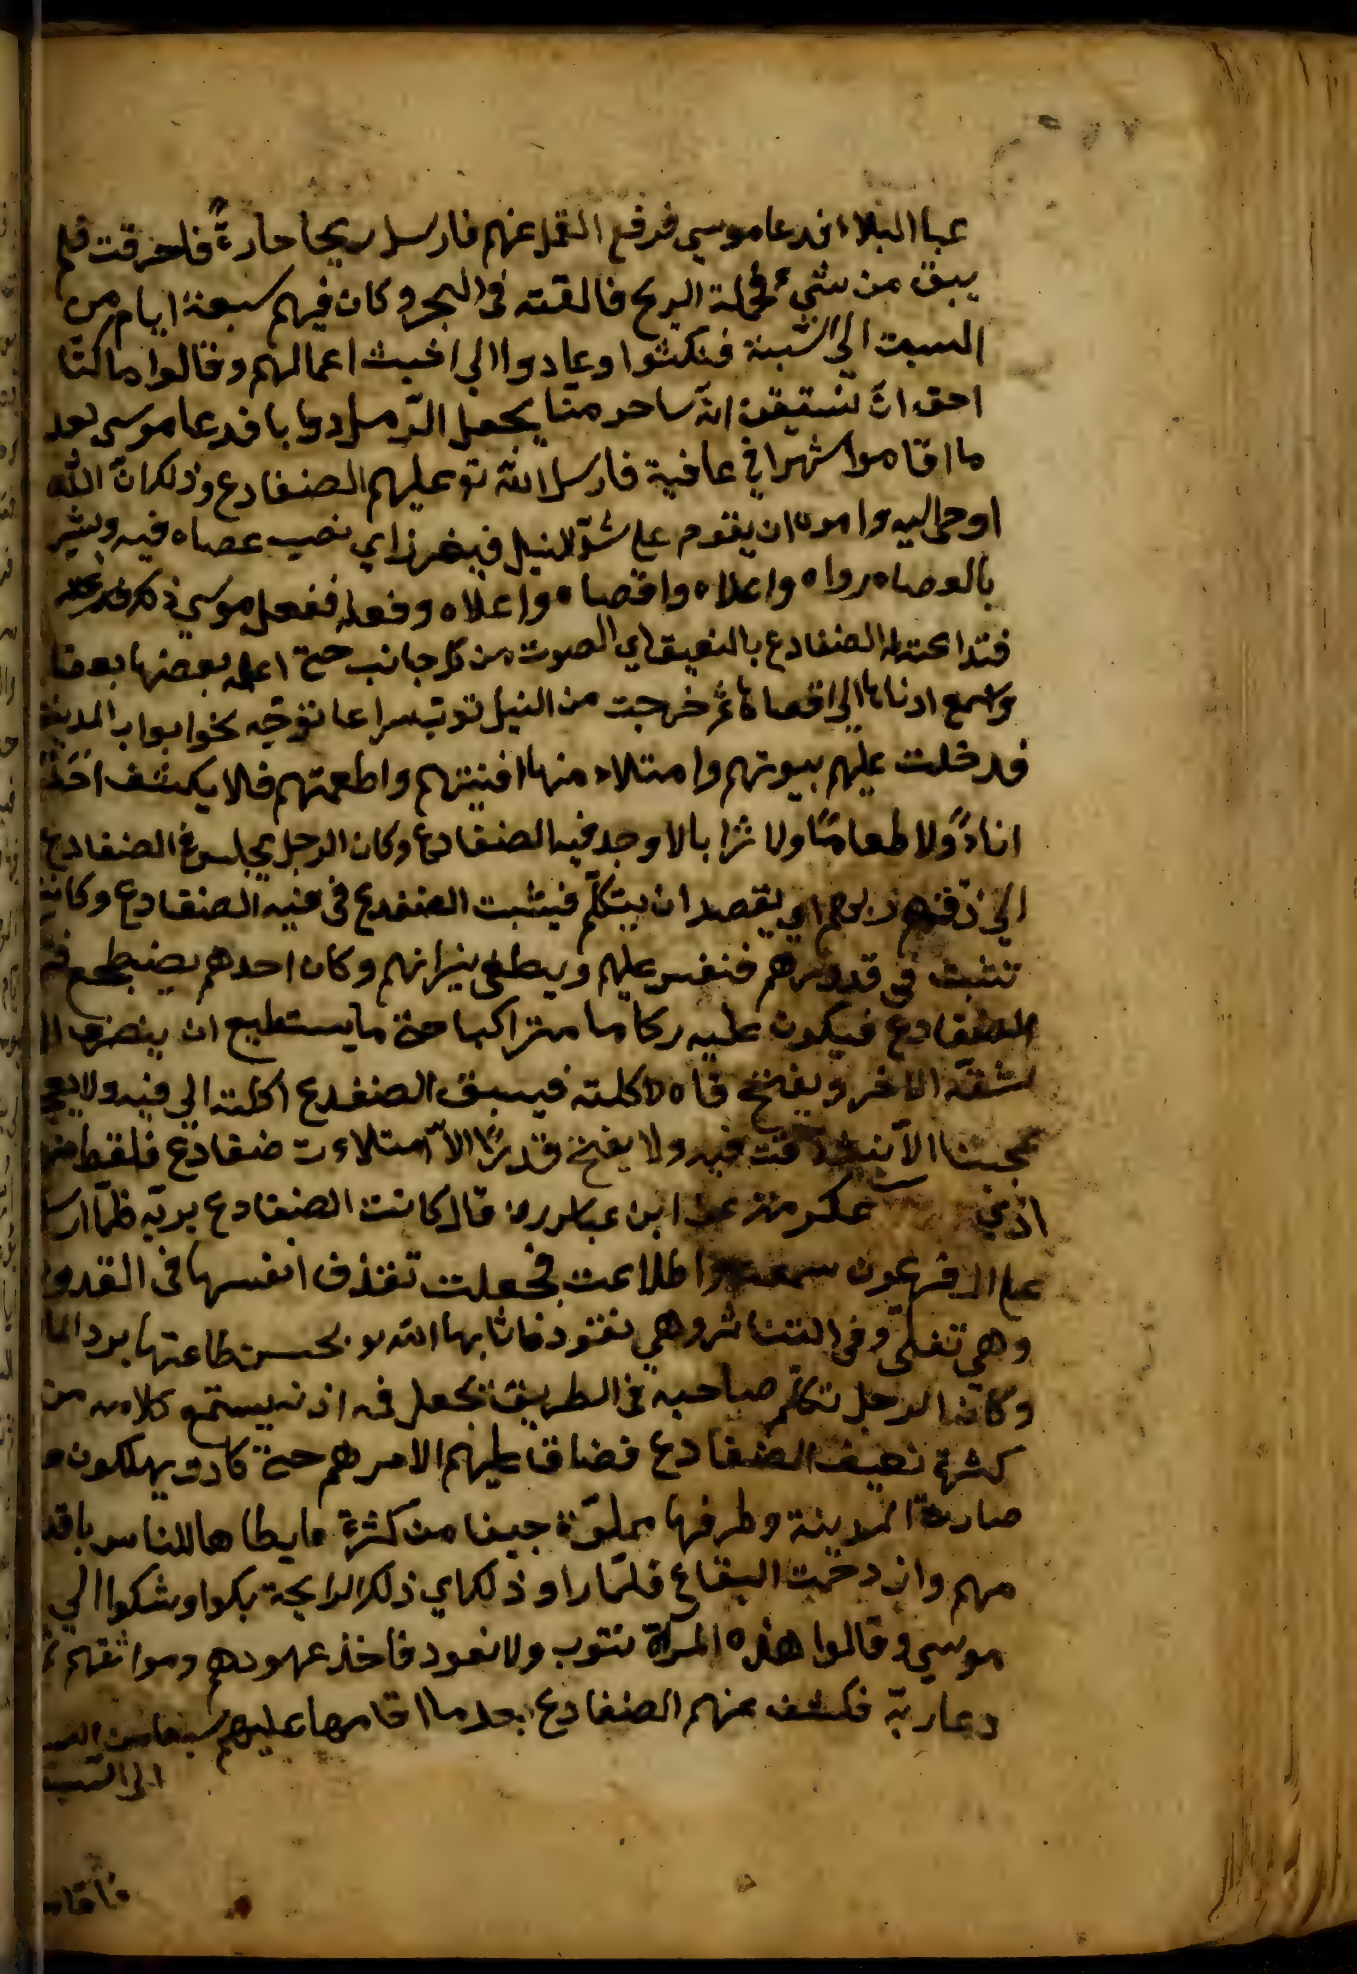 عنا البلاء فدعا موسى فرفع القمل عنهم فارسل ريحا حارة فاحرقت فلم
يبق من شيء فحملة الريح فالقته في البحر وكان فيهم سبعة ايام من
السبت الى السبت فنكثوا وعادوا الى اخبث اعمالهم وقالوا ما كنا
احق ان نستيقن انه ساحر منا يجعل الرمل دوابا فدعا موسى بعد
ما اقاموا شهرا في عافية فارسل الله تع عليهم الضفادع وذلك ان الله
اوحى اليه وامره ان يقوم على النيل فيغرز اي نصب عصاه فيه ويشير
بالعصا ادناه واعلاه واقصاه واعلاه وفعله ففعل موسى ذلك
فتداعت له الضفادع بالنعيق اي الصوت من كل جانب حتى اعلم بعضها بعضا
واسمع ادناها الى اقصاها ثم خرجت من النيل سراعا نحو ابواب المدينة
فدخلت عليهم بيوتهم وامتلاء منها افنيتهم واطعمتهم فلا يكشف احد
اناء ولا طعاما ولا شرابا الا وجد فيه الضفادع وكان الرجل يجلس في الضفادع
الى ذقنهم اي يقصد ان يتكلم فيثبت الضفدع في فيه الضفادع وكانت
تثبت في قدورهم فنفس عليهم ويطفى نيرانهم وكان احدهم يضطجع
الضفادع فيكون عليه ركاما متراكبا حتى ما يستطيع ان ينصرف ال
شقه الاخر ويفتح فاه لاكلته فيسبق الضفدع اكلته الى فيه ولا يعجن
عجينا الا فيه ولا يفتح قدرا الا امتلاءت ضفادع فلقط من
اذى عكرمة عن ابن عباس رض قال كانت الضفادع برية فلما ارسل
على ال فرعون سمعت واطاعت فجعلت تقذف انفسها في القدور
وهي تغلى وفي التنانير وهي تفور فاثابها الله تع بحسن طاعتها برد الماء
وكان الرجل تكلم صاحبه في الطريق يجعل فه اذنه يستمع كلامه من
كثرة نعيق الضفادع فضاق عليهم الامر هم حتى كادت يهلكون و
صارت المدينة وطرفها مملوة جيفا من كثرة ما يطاها الناس باقد
مهم وان دخمت البقاع فلما راو ذلك اي ذلك الرايحة بكوا وشكوا الى
موسى وقالوا هذه المرة نتوب ولا نعود فاخذ عهودهم ومواثقهم ثم
دعا ربه فكشف عنهم الضفادع بعد ما اقامها عليهم سبعا من السبت
الى السبت
فاقام